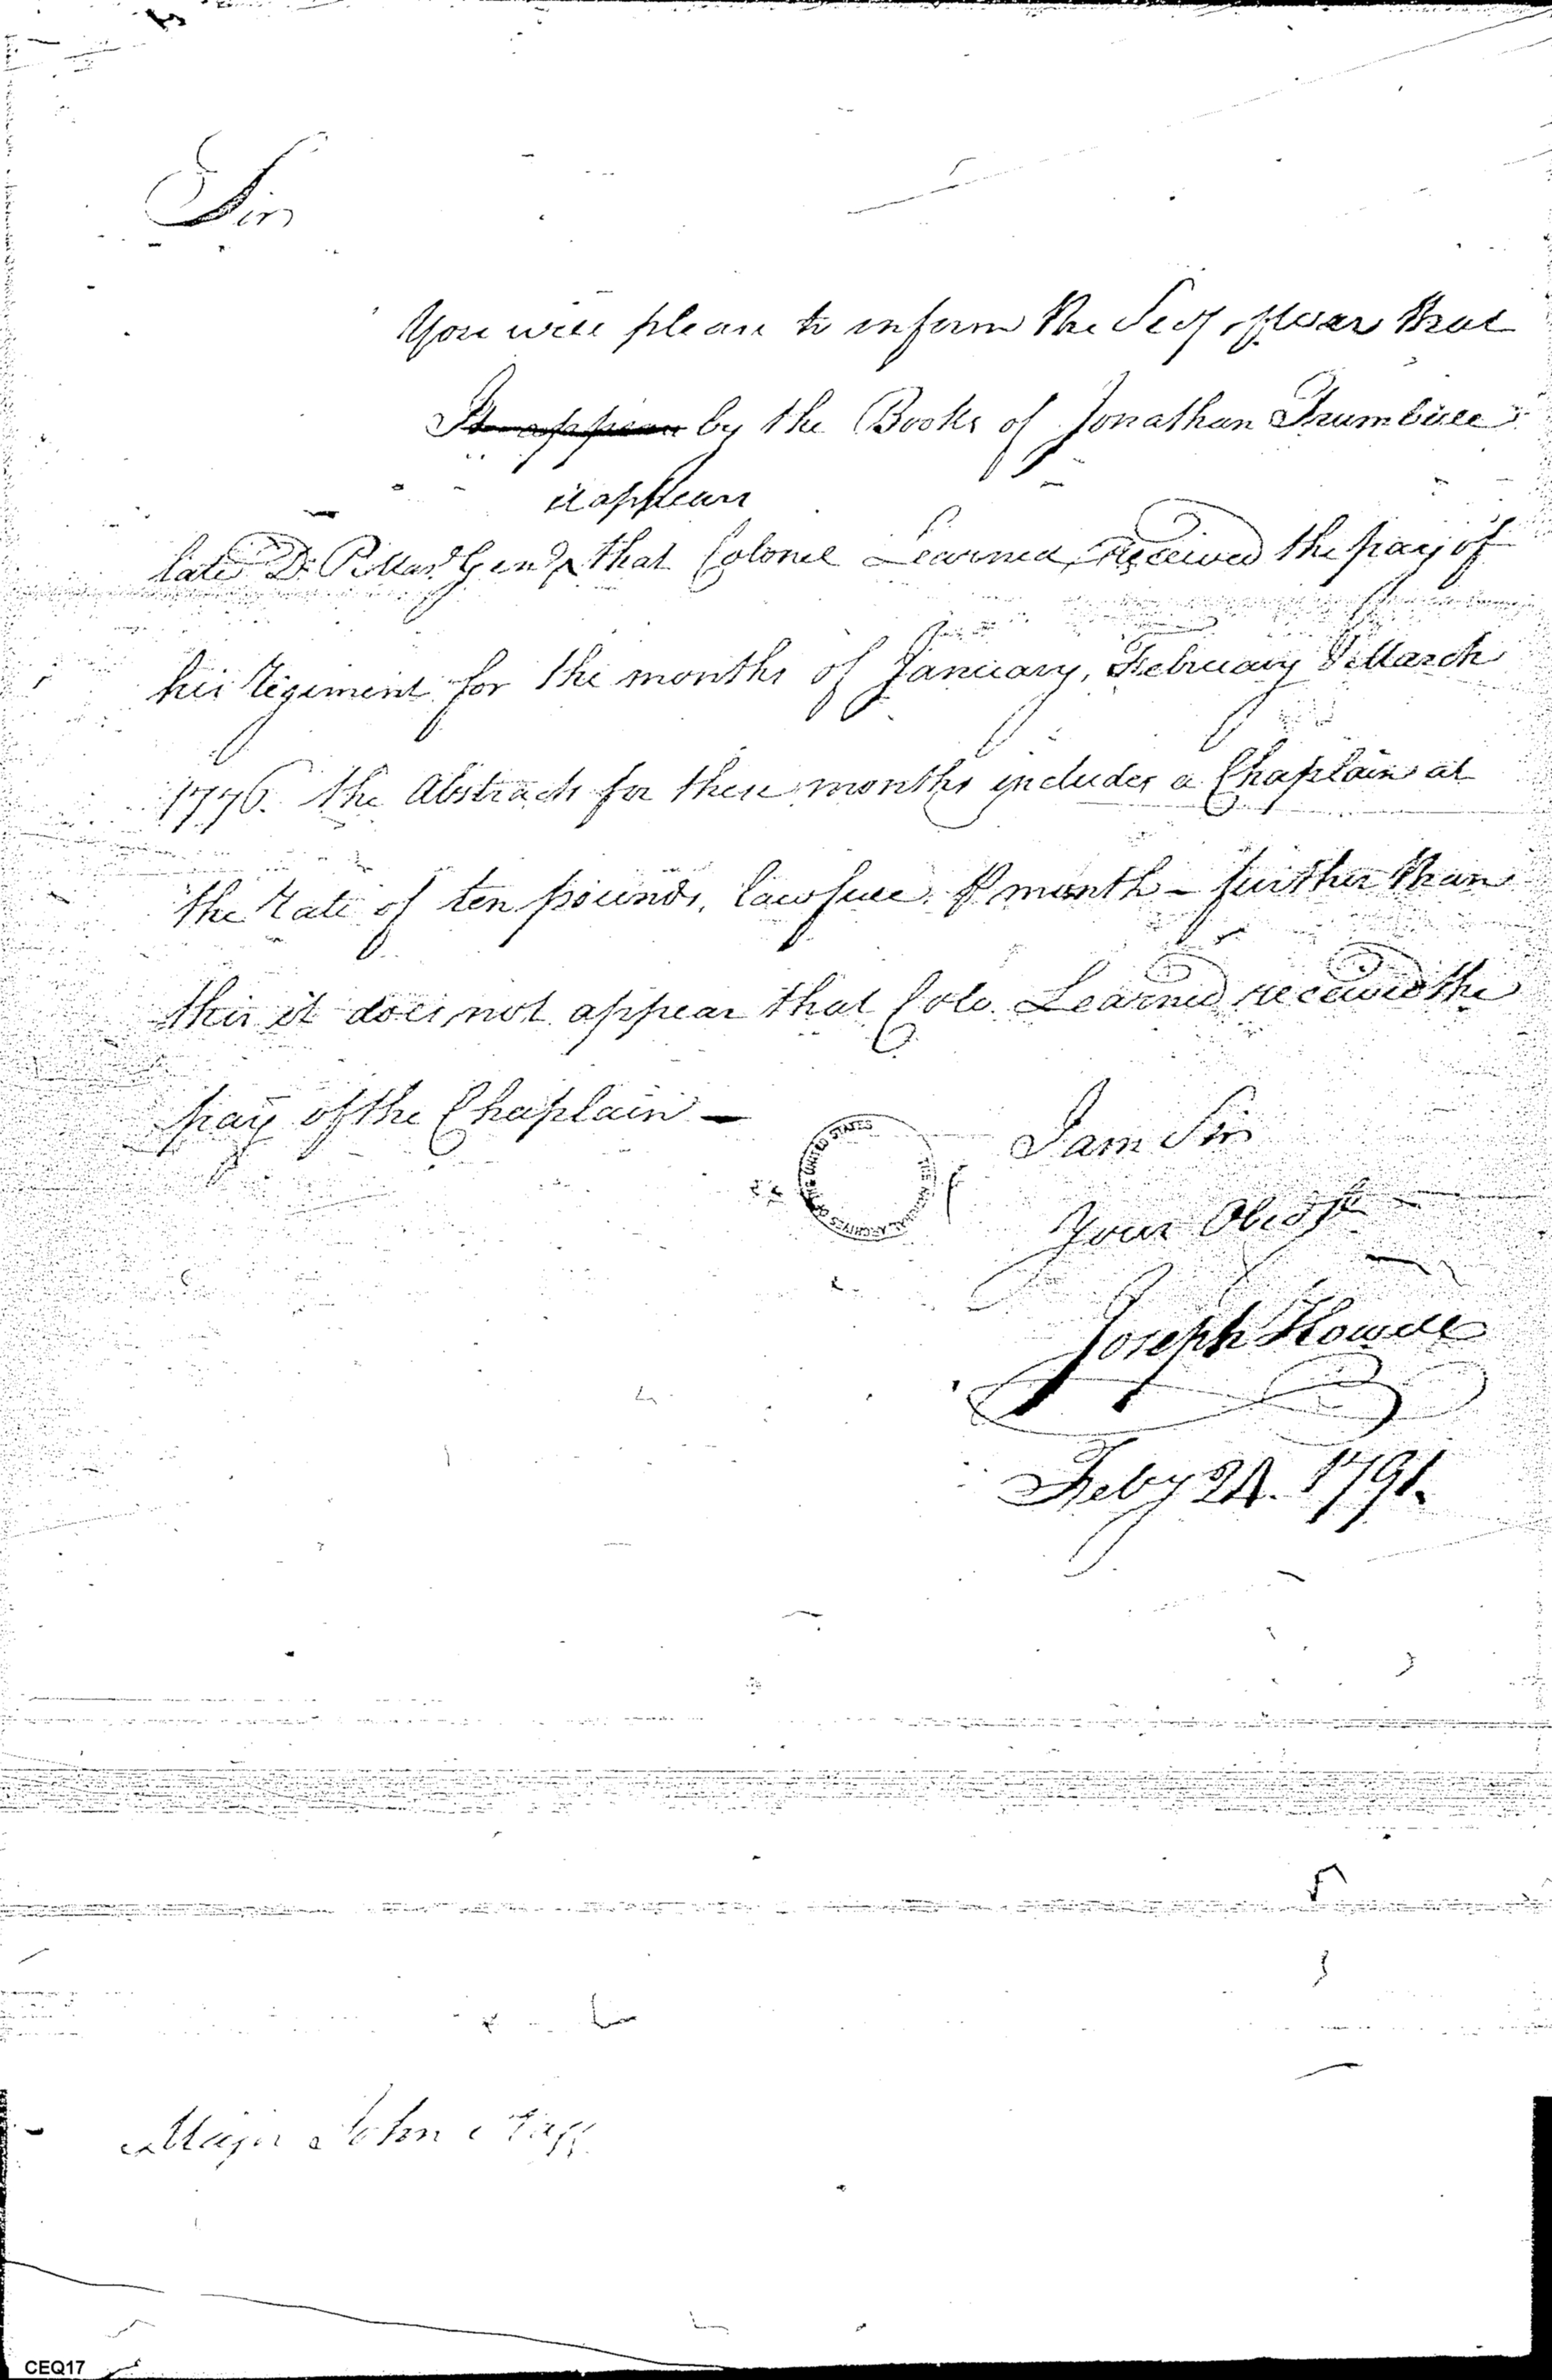 Sir
You will please to inform the Secy of War that
It appears by the Books of Jonathan Trumbull
it appears
late D. P. Mas. Genl that Colonel Learned, received the pay of
his regiment for the months of January, February & March
1776. The Abstracts for these months includes a Chaplain at
the rate of ten pounds, lawfull. P month – further than
this it does not appear that Colo. Learned received the
pay of the Chaplain –
I am Sir
Your Obedt
Joseph Howell
Feby 24. 1791.
Major John Stagg
THE NATIONAL ARCHIVES OF THE UNITED STATES
CEQ17